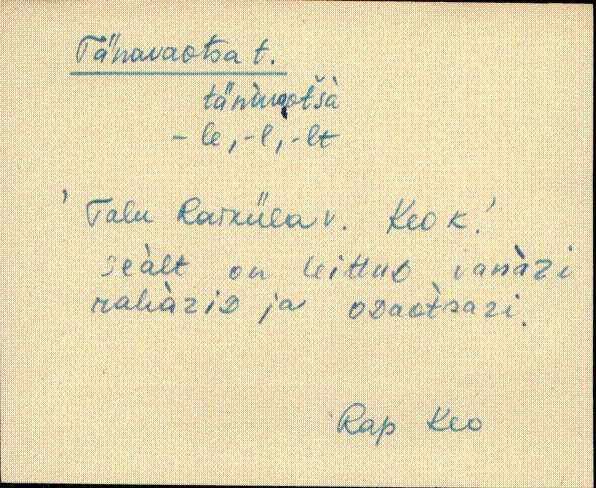 Tänavaotsa t.
tänàvaotsà
- le, -l, -lt
' Talu Raikküla v. Keo k.'
seàlt on leittuD vanàzi
rahàziD ja oDaòtsazi.
Rap Keo